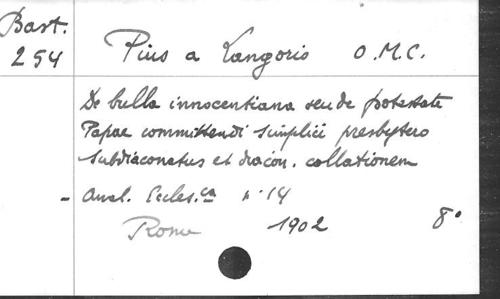 Bart.
254
Pius a Langoris O.M.C.
De bulla innocentiana seu de potestate
Papae committendi simplici presbytero
subdiaconatus et diacon. collationem
- Anal. Eccles.ca n· 14
Rome 1902 8°